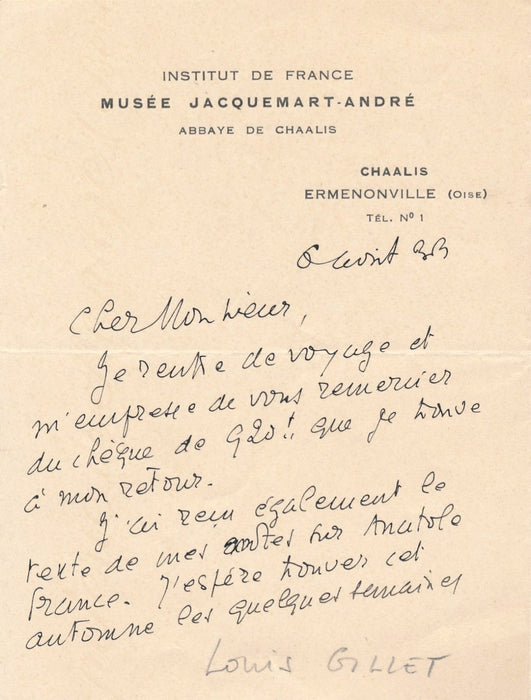 INSTITUT DE FRANCE
MUSÉE JACQUEMART-ANDRÉ
ABBAYE DE CHAALIS
CHAALIS
ERMENONVILLE (OISE)
TÉL. Nº 1
6 avril 33
Cher Monsieur,
Je rentre de voyage et
m'empresse de vous remercier
du chèque de 920 que je trouve
à mon retour.
J'ai reçu également le
texte de mes notes sur Anatole
France. J'espère trouver cet
automne les quelques semaines
Louis GILLET